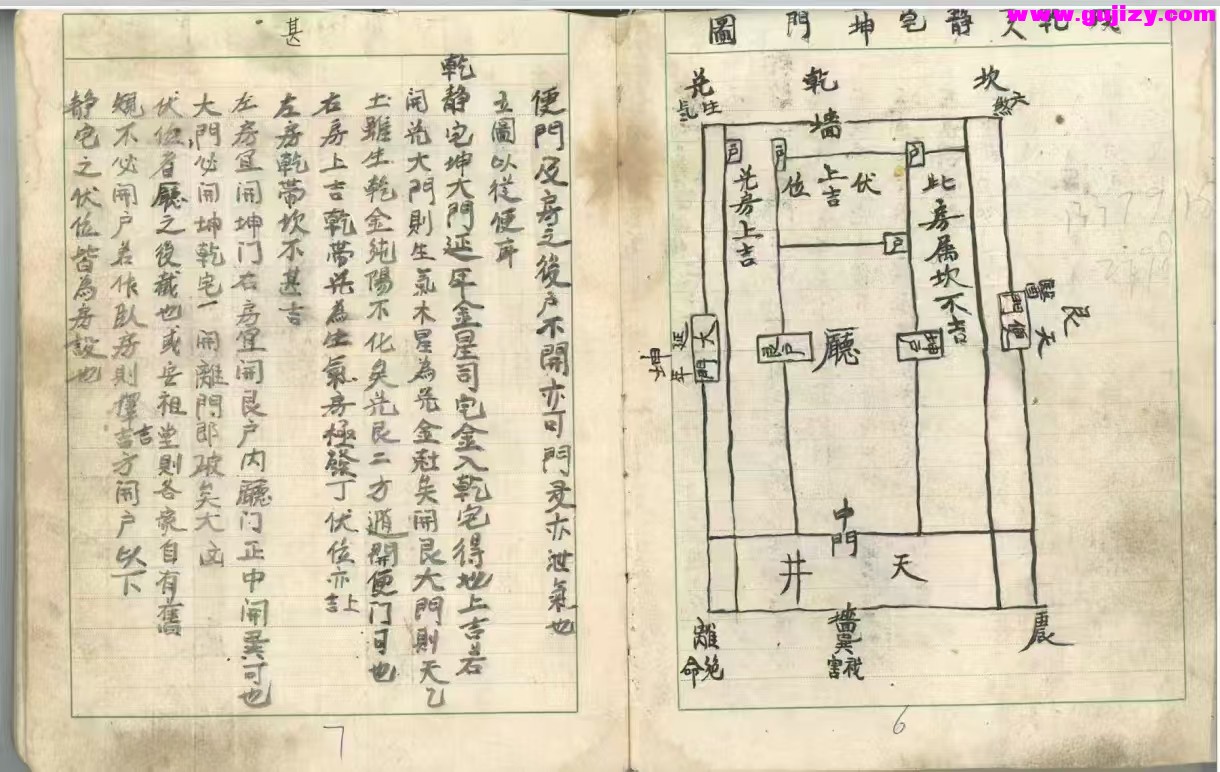 www.gujizy.com
静宅坤門圖
坎
六煞
乾
兑
生氣
墻
户
户
户
伏
上吉
位
兑房上吉
此房属坎不吉
户
艮
天醫
便門
坤户
廳
艮户
大門
延年
坤
中門
天
井
震
墻
巽
禍害
離
絶命
6
甚
便門及房之後户不開亦可門多亦泄氣也
立圖以從便耳
乾静宅坤大門延年金星司宅金入乾宅得地上吉若
開兑大門則生氣木星為兑金尅矣開艮大門則天乙
土雖生乾金純陽不化矣兑艮二方遁開便门可也
右房上吉乾帶兑為生氣房極發丁伏位亦上吉
左房乾帶坎不甚吉
左房宜開坤门右房宜開艮户内廳门正中開巽可也
大門必開坤乾宅一開離門即破矣大凶
伏位者廳之後截也或安祖堂則各家自有舊
規不必開户若作臥房則擇吉方開户以下
静宅之伏位皆為房設也
7